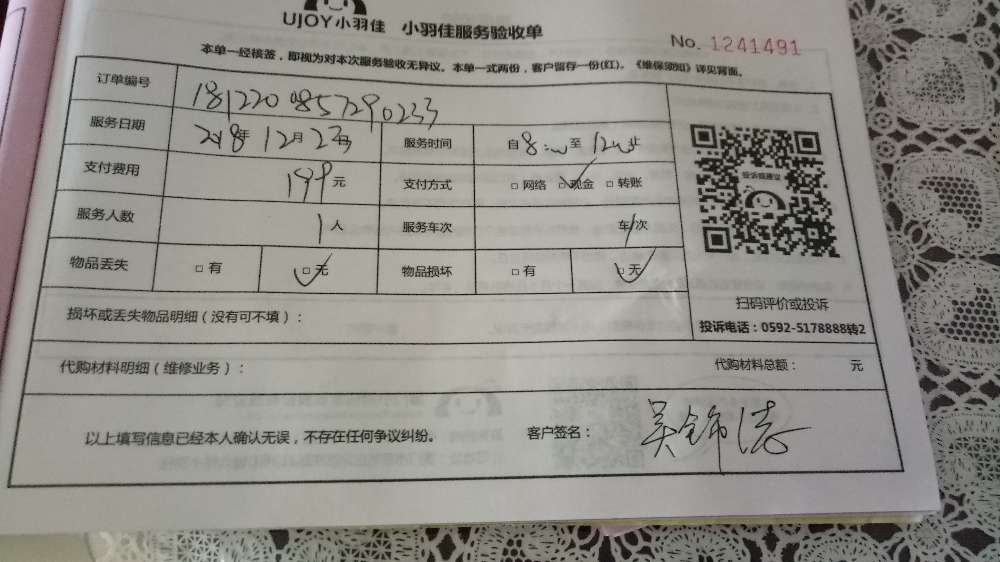 UJOY小羽佳 小羽佳服务验收单
No. 1241491
本单一经核签，即视为对本次服务验收无异议。本单一式两份，客户留存一份(红)。《维保须知》详见背面。
订单编号 1812200857290233
服务日期 2018年12月23日 服务时间 自8:00至12:00止
支付费用 199元 支付方式 □网络 ☑现金 □转账
服务人数 1人 服务车次 车/次
物品丢失 □有 ☑无 物品损坏 □有 ☑无
投诉或建议
扫码评价或投诉
投诉电话：0592-5178888转2
损坏或丢失物品明细（没有可不填）：
代购材料明细（维修业务）： 代购材料总额： 元
以上填写信息已经本人确认无误，不存在任何争议纠纷。 客户签名：吴锦志